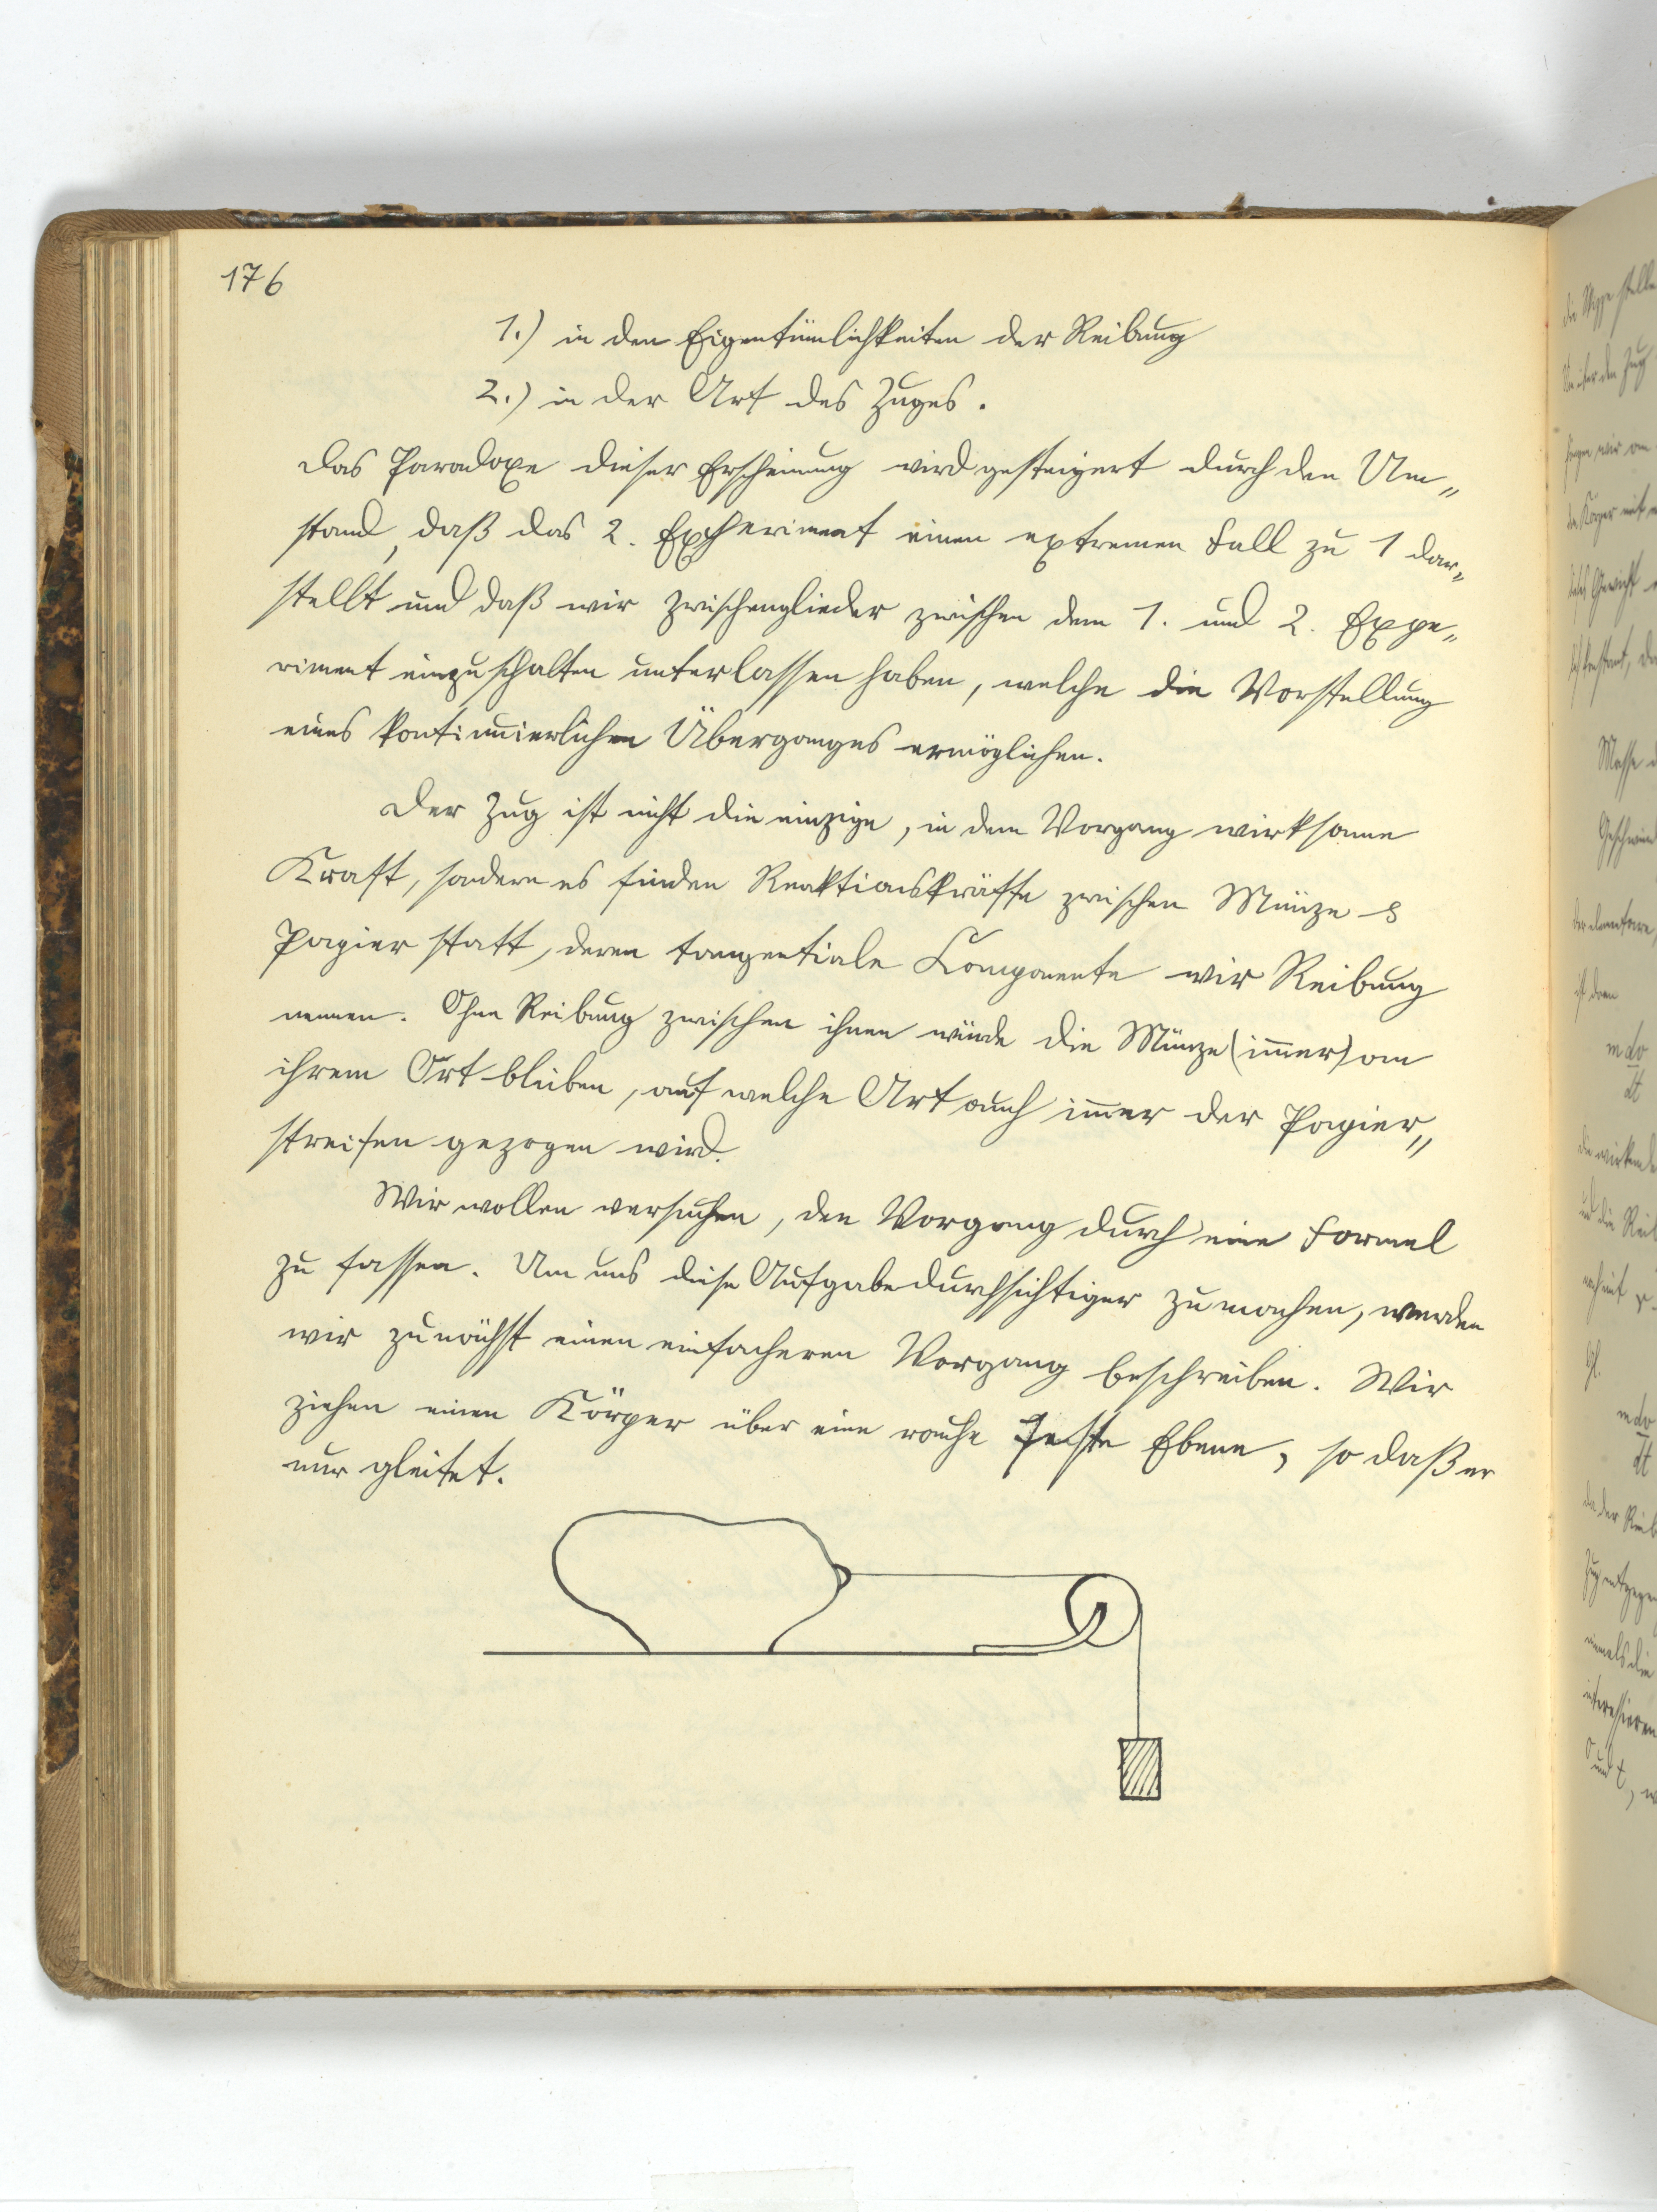 176
1.) in den Eigentümlichkeiten der Reibung
2.) in der Art des Zuges.
Das Paradoxe dieser Erscheinung wird gesteigert durch den Um„
stand, daß das 2. Experiment einen extremen Fall zu 1 dar„
stellt und daß wir Zwischenglieder zwischen dem 1. und 2. Expe„
riment einzuschalten unterlassen haben, welche die Vorstellung
eines kontinuierlichen Überganges ermöglichen.
Der Zug ist nicht die einzige, in dem Vorgang wirksame
Kraft, sondern es finden Reaktionskräfte zwischen Münze &
Papier statt, deren tangentiale Componente wir Reibung
nennen. Ohne Reibung zwischen ihnen würde die Münze (im̅er) an
ihrem Ort bleiben, auf welche Art auch im̅er der Papier„
streifen gezogen wird.
Wir wollen versuchen, den Vorgang durch eine Formel
zu fassen. Um uns diese Aufgabe durchsichtiger zu machen, werden
wir zunächst einen einfacheren Vorgang beschreiben. Wir
ziehen einen Körper über eine rauhe feste Ebene, so daß er
nur gleitet.